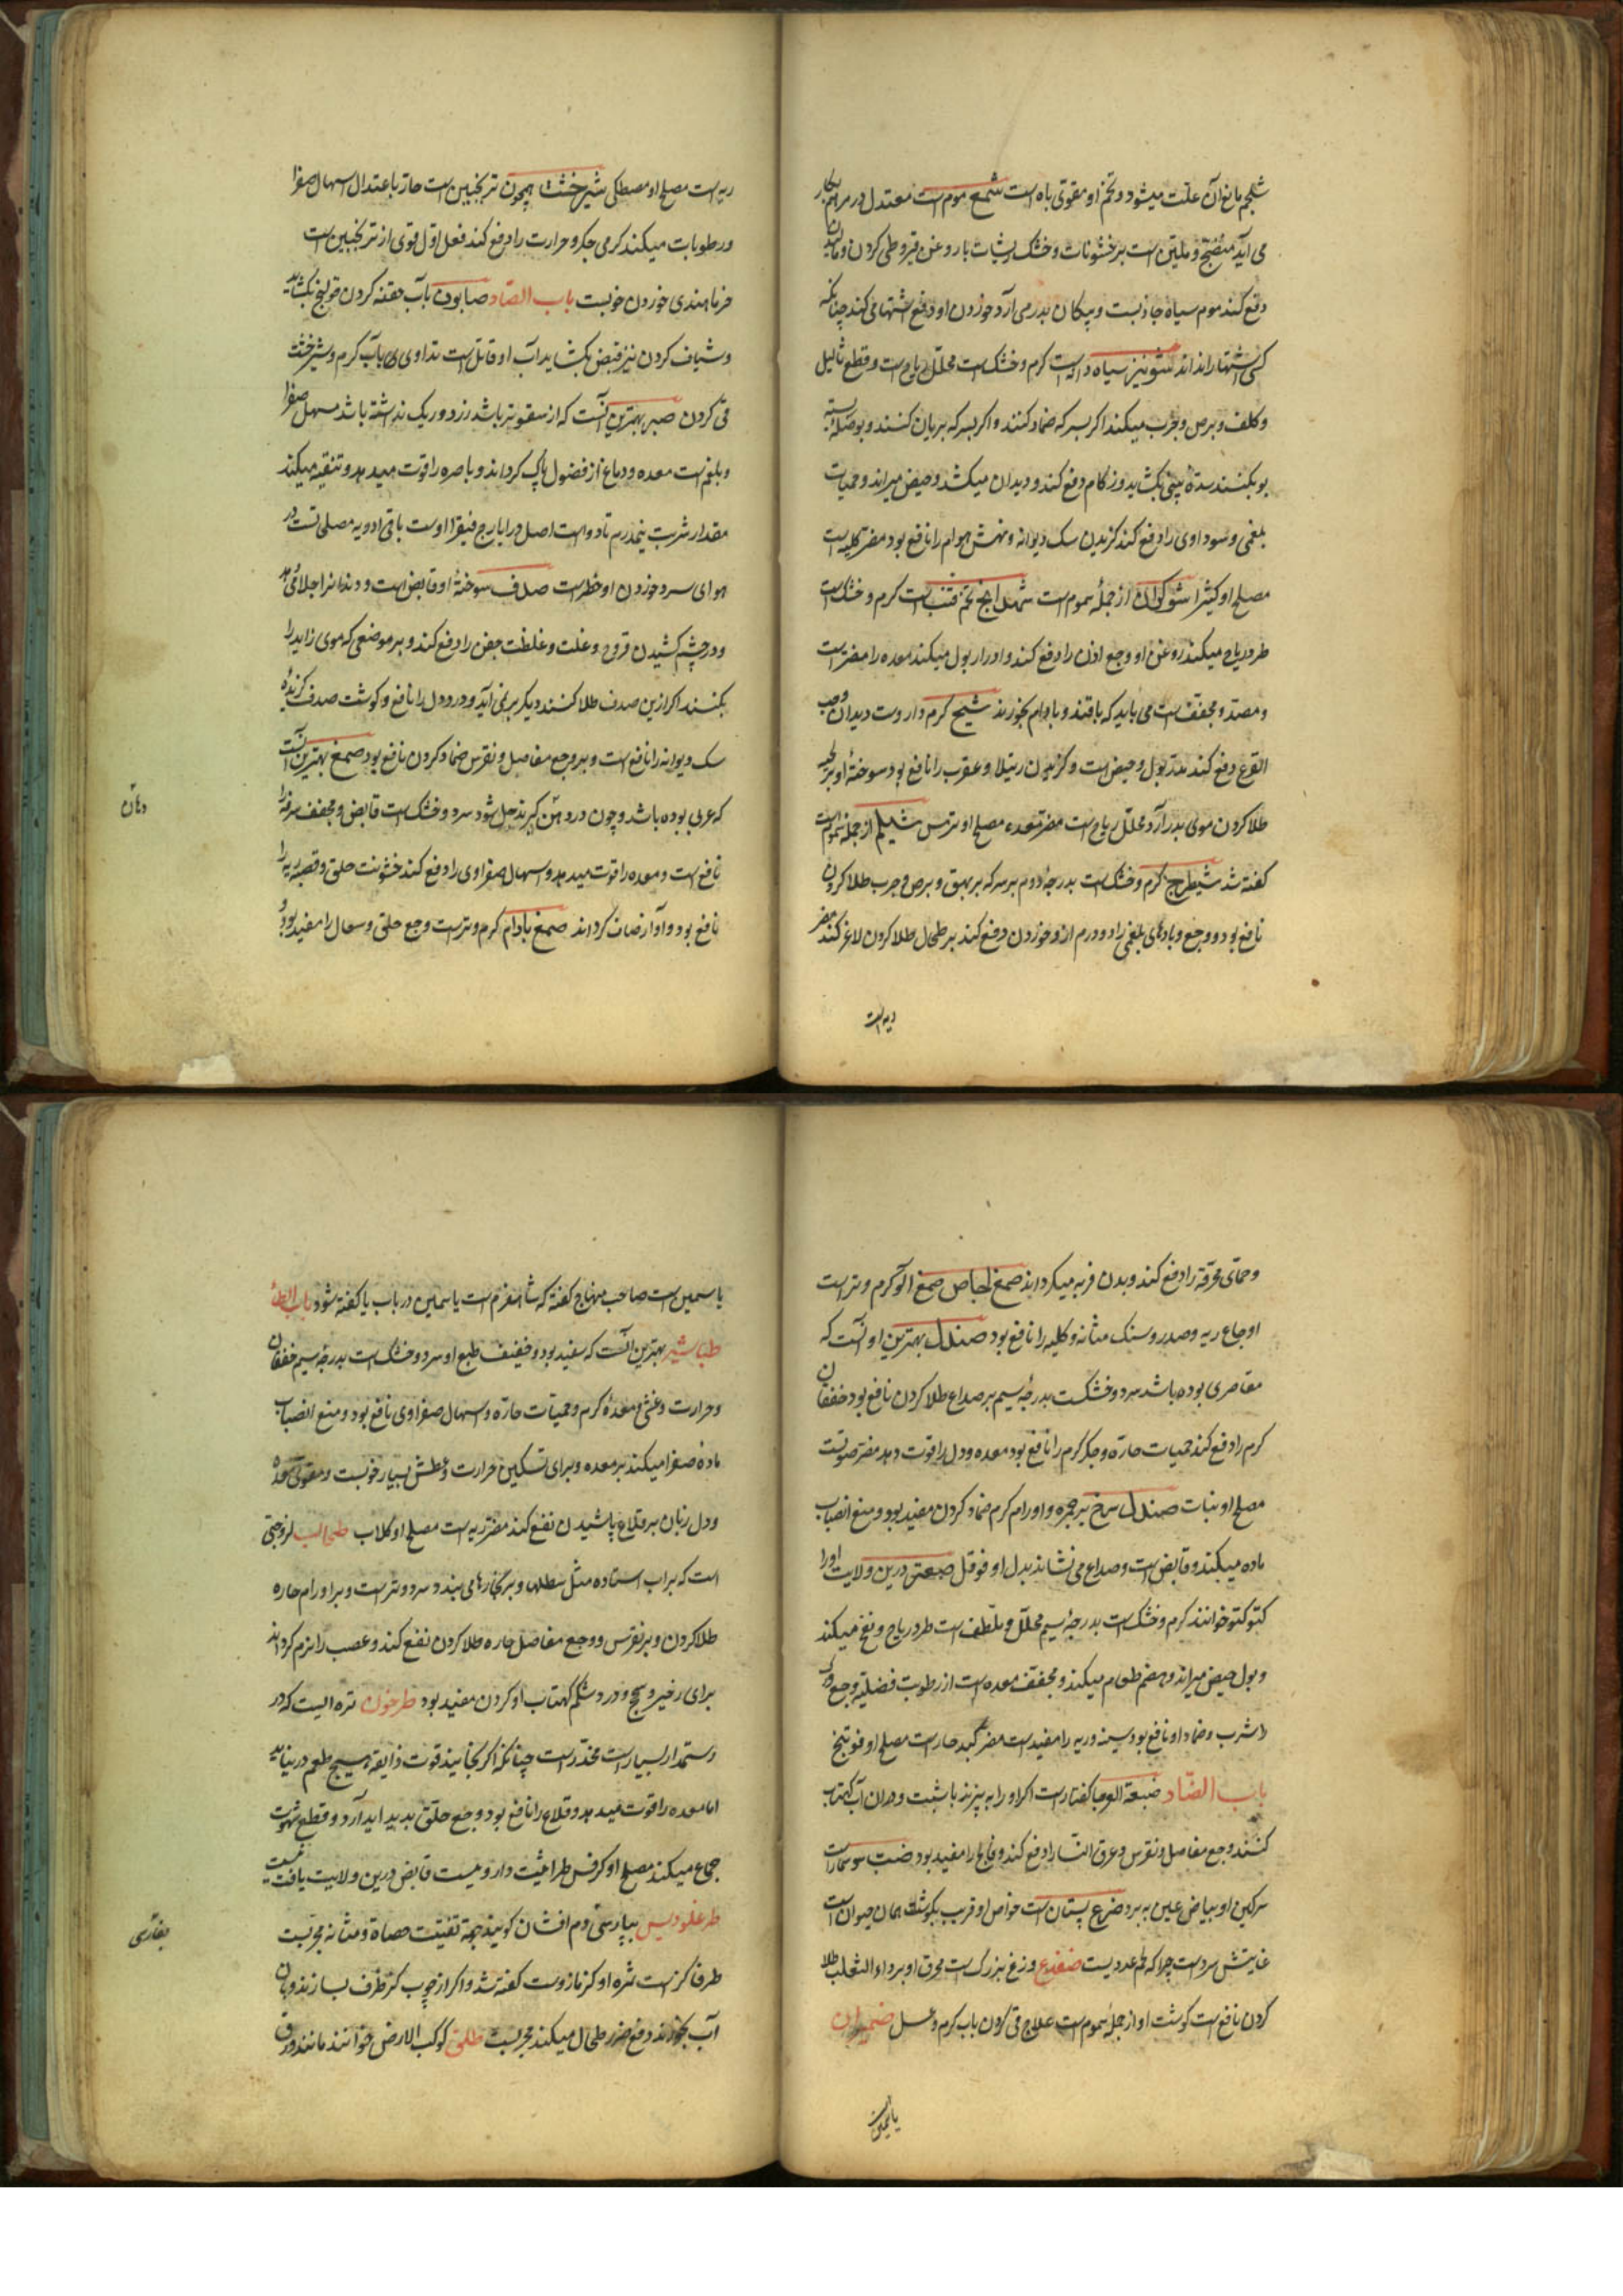 شلجم مانع آن علت میشود و تخم او مقوی باه است شمع موم است معتدل در مراهم بکار
می آید منضج و ملین است بر خشونات و خشک ریشات با روغن قیروطی کردن و مالیدن
دفع کند موم سیاه جاذبست و پیکان بدر می آرد خوردن او دفع اشتها می کند چنانکه
کسی اشتها را نداند شونیز سیاه دانه است کرم و خشک است محلل ریاح است و قطع ثالیل
و کلف و برص و جرب میکند اکر بسرکه ضماد کنند و اکر بسرکه بریان کنند و بوصله بسته
بو بکنند سده بینی بکشاید و زکام دفع کند و دیدان میکشد و حیض میراند و حمیات
بلغمی و سوداوی را دفع کند کزیدن سک دیوانه و نهش هوام را نافع بود مضر کلیه است
مصلح او کثیرا شوکران از جمله سموم است شهدانج تخم قنب است کرم و خشک است
طرد ریاح میکند روغن او وجع اذن را دفع کند و ادرار بول میکند معده را مضر است
و مصدع و مجفف است می باید که با قند و بادام بخورند شیح کرم داروست دیدان و حب
القرع دفع کند مدر بول و حیض است و کزیدن رتیلا و عقرب را نافع بود سوخته او بر لحیه
طلا کردن موی بدر آرد محلل ریاح است مضر معده مصلح او ترمس شیلم از جمله سموم است
کفته شد شیطرج کرم و خشک است بدرجه دوم بسرکه بر بهق و برص و جرب طلا کردن
نافع بود و وجع و بادهای بلغمی را دو درم ازو خوردن دفع کند بر طحال طلا کردن لاغر کند مضر
ریه است
ریه است مصلح او مصطکی شیرخشت همچون ترنجبین است حار باعتدال اسهال صفرا
و رطوبات میکند کرمی جکر و حرارت را دفع کند فعل او قوی از ترنجبین است
خرما هندی خوردن خوبست باب الصاد صابون باب حقنه کردن قولنج بکشاید
و شیاف کردن نیز قبض بکشاید آب او قاتل است تداوی وی بآب کرم و شیرخشت
قی کردن صبر بهترین آنست که از سقوتر باشد زرد و ریک نداشته باشد مسهل صفرا
و بلغم است معده و دماغ از فضول پاک کرداند و باصره را قوت میدهد و تنقیه میکند
مقدار شربت نیمدرم تا دو است اصل در ایارج فیقرا اوست باقی ادویه مصلح تست در
هوای سرد خوردن او خطر است صدف سوخته او قابض است و دندانرا جلا می دهد
و در چشم کشیدن قروح و غلت و غلظت جفن را دفع کند و بر موضعی که موی زاید را
بکنند اکر ازین صدف طلا کنند دیکر بر نمی آید و درد دل را نافع و کوشت صدف کزیده
سک دیوانه را نافع است و بر وجع مفاصل و نقرس ضماد کردن نافع بود صمغ بهترین آنست
که عربی بوده باشد و چون در دهن کیرند حل شود سرد و خشک است قابض و مجفف سرفه را
نافع است و معده را قوت میدهد و اسهال صفراوی را دفع کند خشونت حلق و قصبه ریه را
نافع بود و آواز صاف کرداند صمغ بادام کرم و تر است وجع حلق و سعال را مفید بود
و حمای محرقه را دفع کند و بدن فربه میکرداند صمغ اجاص صمغ آلو کرم و تر است
اوجاع ریه و صدر و سنک مثانه و کلیه را نافع بود صندل بهترین او آنست که
مقاصری بوده باشد سرد و خشکست بدرجه سیم بر صداع طلا کردن نافع بود خفقان
کرم را دفع کند حمیات حاره و جکر کرم را نافع بود معده و دل را قوت دهد مضر صوتست
مصلح او نبات صندل سرخ بر حمره و اورام کرم ضماد کردن مفید بود و منع انصباب
ماده میکند و قابض است و صداع می نشاند بدل او فوفل صعتر درین ولایت او را
کتو کتو خوانند کرم و خشک است بدرجه سیم محلل و ملطف است طرد ریاح و نفخ میکند
و بول حیض میراند و هضم طعام میکند و مجفف معده است از رطوبت فضلیه وجع ورک
را شرب و ضماد او نافع بود سینه و ریه را مفید است مضر کبد حار است مصلح او فوتنج
باب الضاد ضبعة العرجا کفتار است اکر او را به پزند با شبت و در آن آب آبکتاب
کنند وجع مفاصل و نقرس و عرق النسا را دفع کند و فالج را مفید بود ضب سوسمار است
سرکین او بیاض عین به برد ضرع پستان است خواص او قریب بکوشت همان حیوان است
غایتش سرد است چرا که لحم غددیست ضفدع وزغ بزرک است محرق او بر داء الثعلب طلا
کردن نافع است کوشت او از جمله سموم است علاج قی کردن باب کرم و عسل ضمیران
یاسمین
یاسمین است صاحب منهاج کفته که شاهسفرم است یاسمین در باب یا کفته شود باب الطا
طباشیر بهترین آنست که سفید بود و خفیف طبع او سرد و خشک است بدرجه سیم خفقان
و حرارت و غشی و معده کرم و حمیات حاره و اسهال صفراوی نافع بود و منع انصباب
ماده صفرا میکند بر معده و برای تسکین حرارت و عطش بسیار خوبست و مقوی معده
و دل زنان بر قلاع پاشیدن نفع کند مضر ریه است مصلح او کلاب طحالب لزوجتی
است که بر آب استاده مثل سطلها و بر کنارها می بندد سرد و تر است و بر اورام حاره
طلا کردن و بر نقرس و وجع مفاصل حاره طلا کردن نفع کند و عصب را نرم کرداند
برای زحیر و سحج و درد شکم آبکتاب او کردن مفید بود طرخون تره ایست که در
رستمدار بسیار است مخدر است چنانکه اکر بخایند قوت ذایقه هیچ طعم در نیابد
اما معده را قوت میدهد و قلاع را نافع بود و وجع حلق بدید آرد و قطع شهوت
جماع میکند مصلح او کرفس طراثیث داروییست قابض درین ولایت یافت نیست
طرغلودیس بپارسی دم افشان کویند جهة تفتیت حصاة و مثانه مجربست
طرفا کز است ثمره او کزمازوست کفته شد و اکر از چوب کز ظرف بسازند و با آن
آب بخورند دفع ضرر طحال میکند مجربست طلق کوکب الارض خوانند مانند ورق